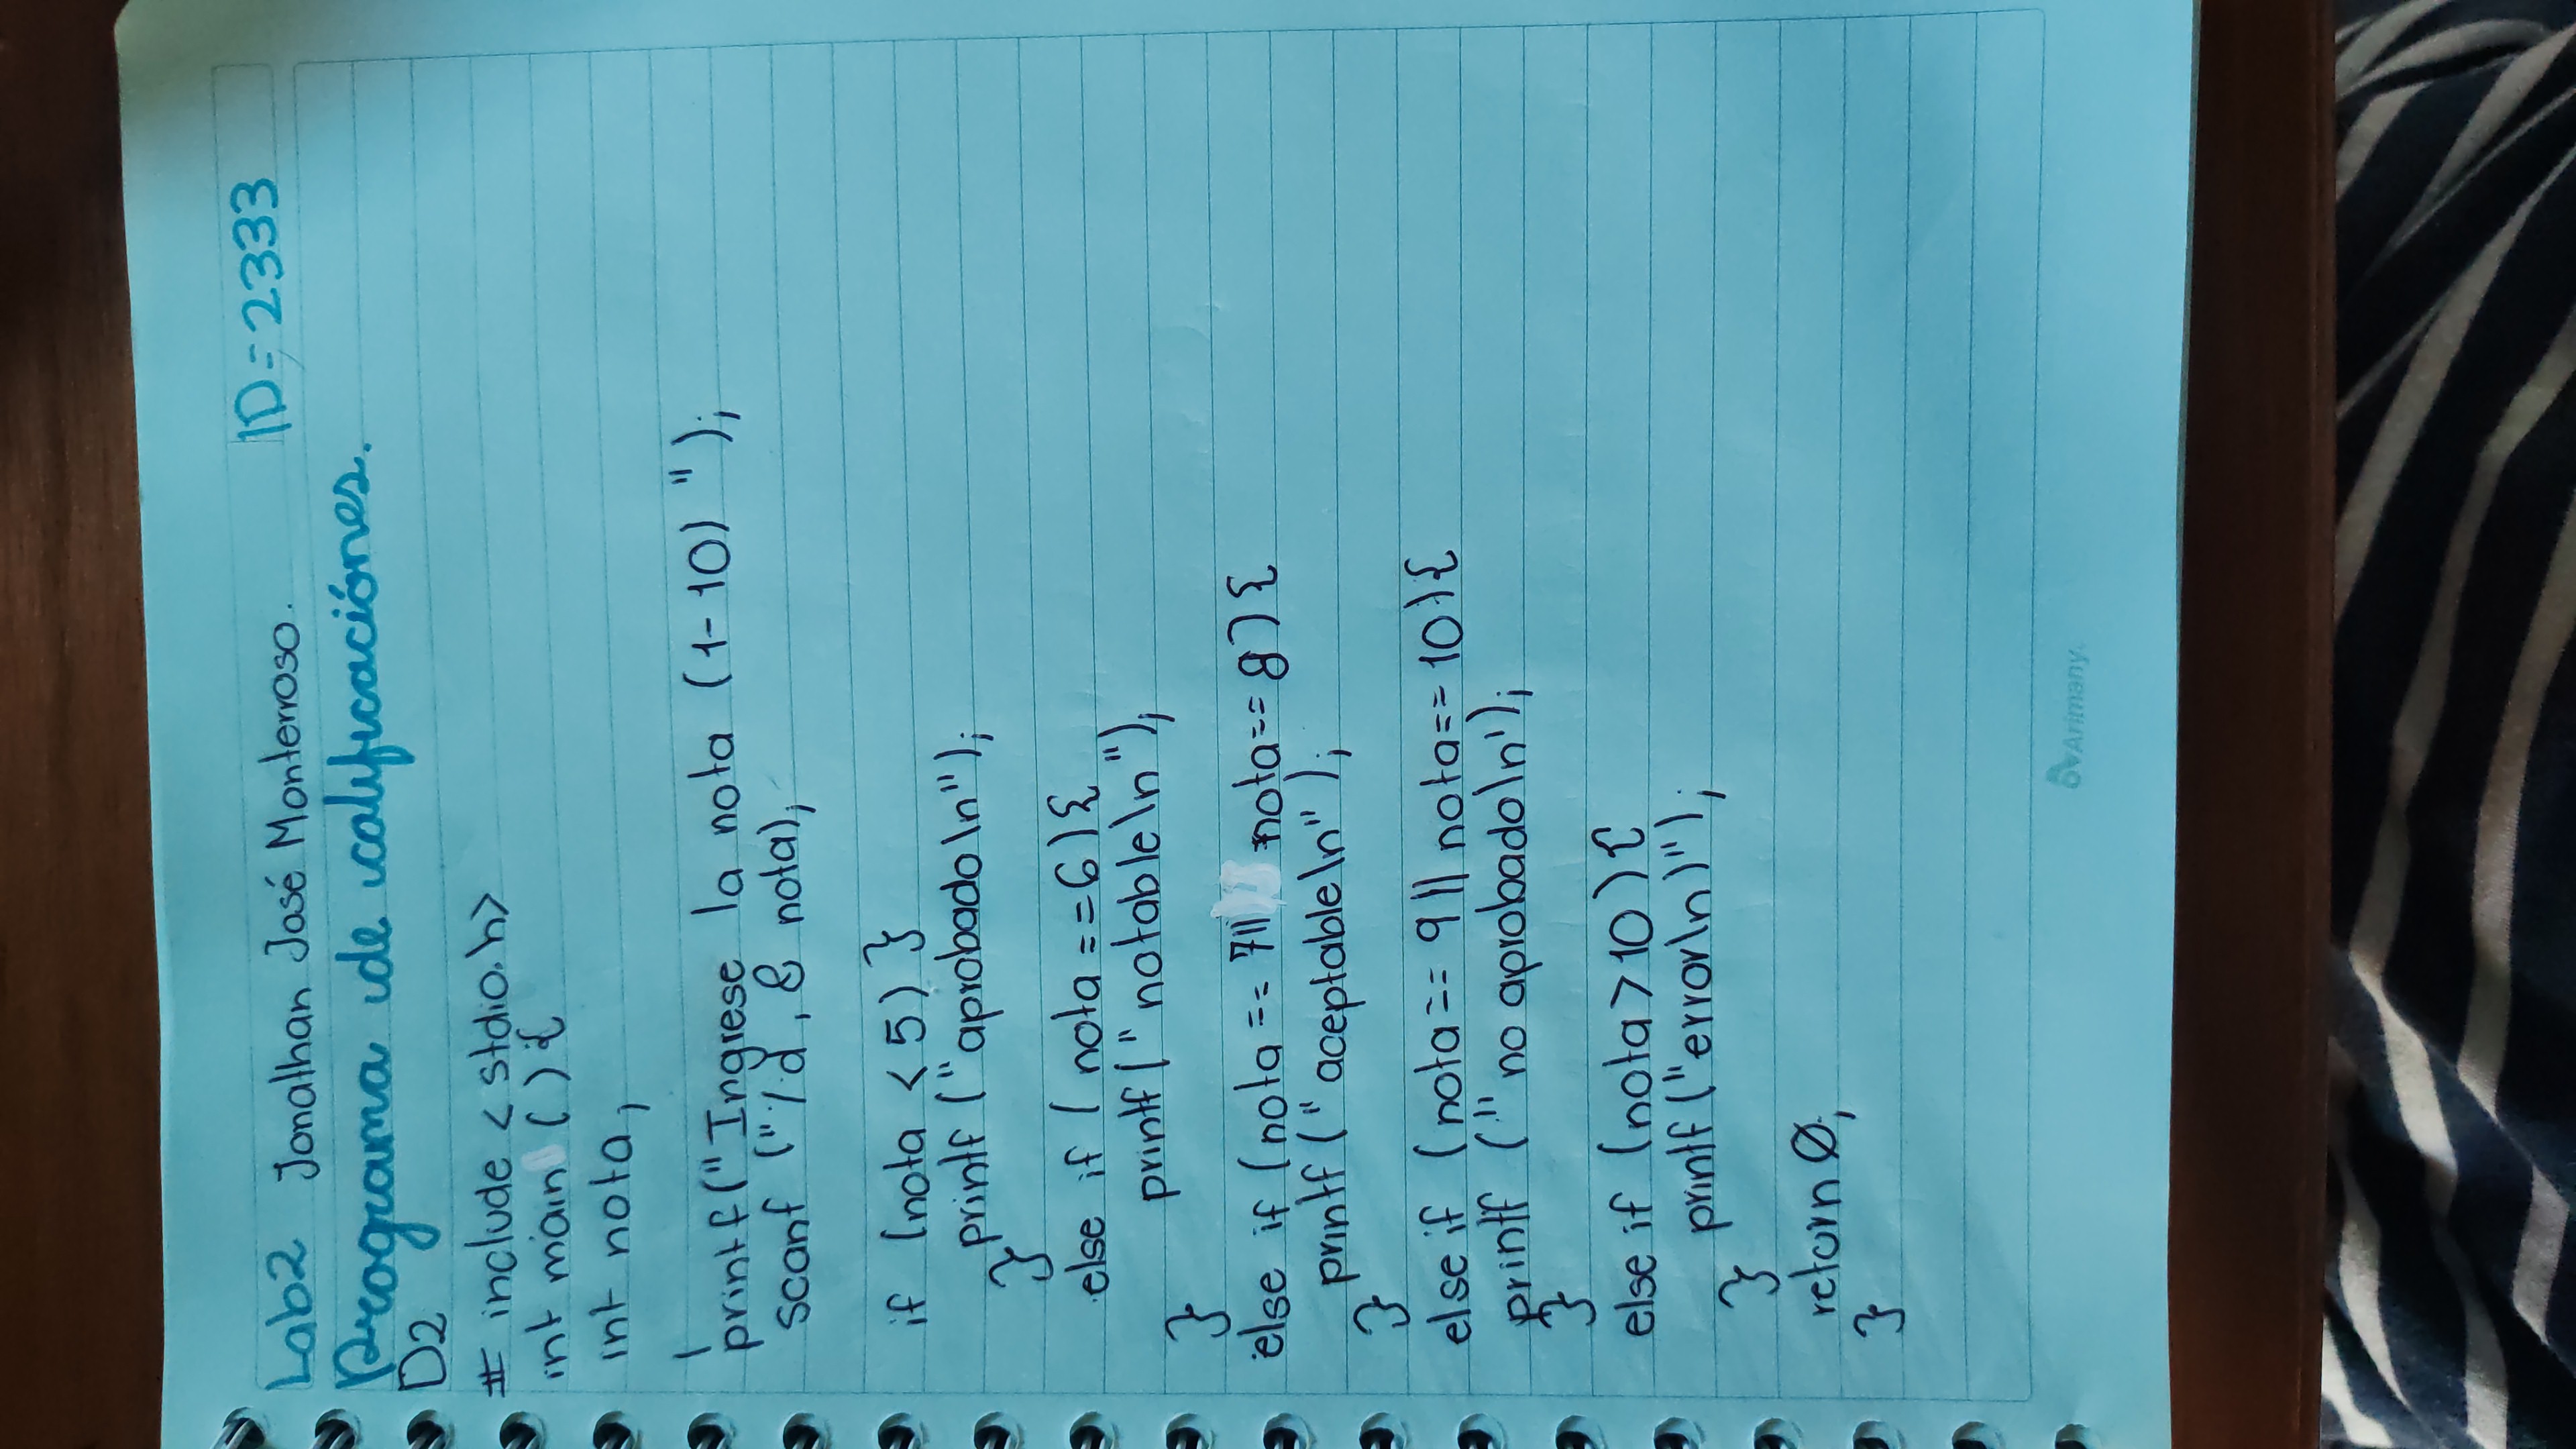 Lab2 Jonathan José Monterroso. ID=2333
Programa de calificaciónes.
D2
# include < stdio.h>
int main ( ) {
int nota;
printf("Ingrese la nota (1-10) ");
scanf ("%d, & nota);
if (nota < 5) }
printf ("aprobado\n");
}
else if ( nota ==6) {
printf (" notable\n");
}
else if (nota == 7|| nota== 8) {
printf (" aceptable\n");
}
else if (nota == 9 || nota== 10) {
printf (" no aprobado\n');
}
else if (nota > 10) {
printf ("error\n)");
}
return 0;
}
Arimany.